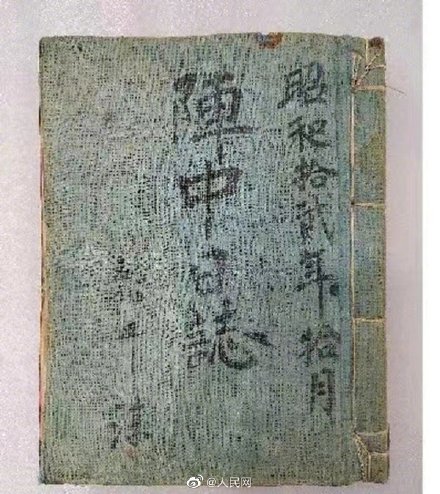 昭和拾貳年拾月
陣中日誌
@人民网